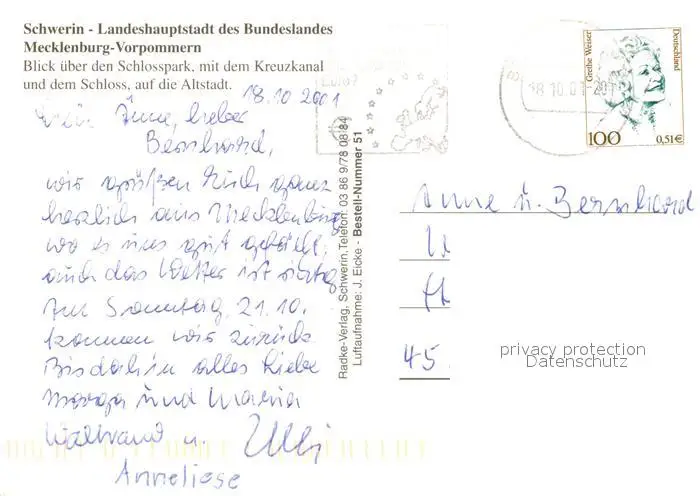 Schwerin - Landeshauptstadt des Bundeslandes
Mecklenburg-Vorpommern
Blick über den Schlosspark, mit dem Kreuzkanal
und dem Schloss, auf die Altstadt.
18.10 2001
Anne, lieber
Bernhard,
wir grüßen Euch ganz
herzlich aus Mecklenburg
wo es uns gut gefällt,
auch das Wetter ist richtig
Am Sonntag, 21.10.
kommen wir zurück
Bis dahin alles Liebe
und Maria
Waltraud u. Ulli
Anneliese
Radke-Verlag, Schwerin,Telefon: 03 86 9/78 08 84
Luftaufnahme: J. Eicke - Bestell-Nummer 51
18.10.01-20
Grethe Weiser
Deutschland
100
0,51€
Anne u. Bernhard
45
privacy protection
Datenschutz